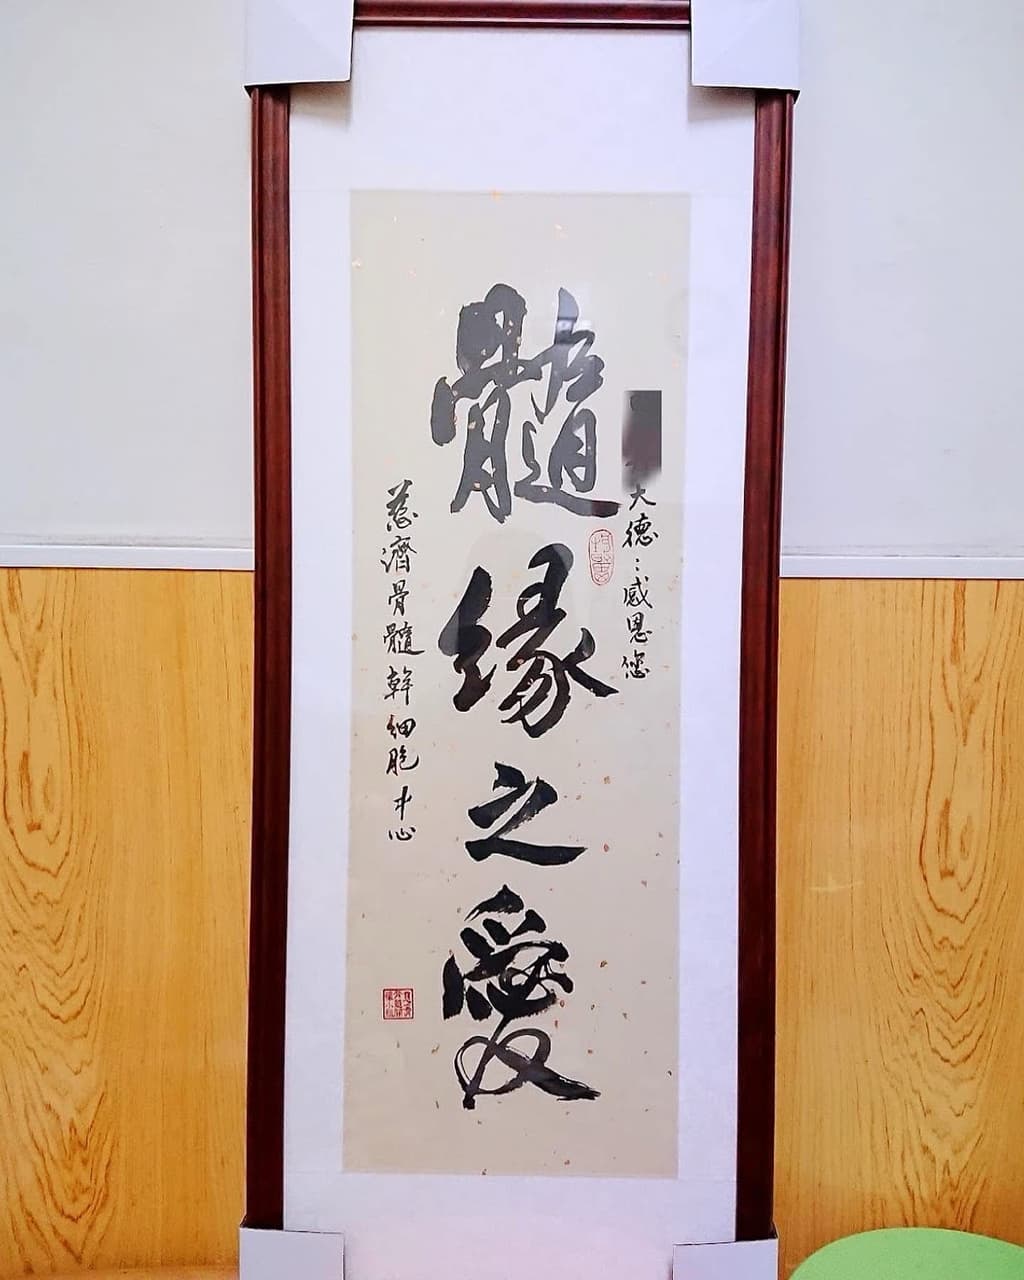 大德：感恩您
髓緣之愛
慈濟骨髓幹細胞中心